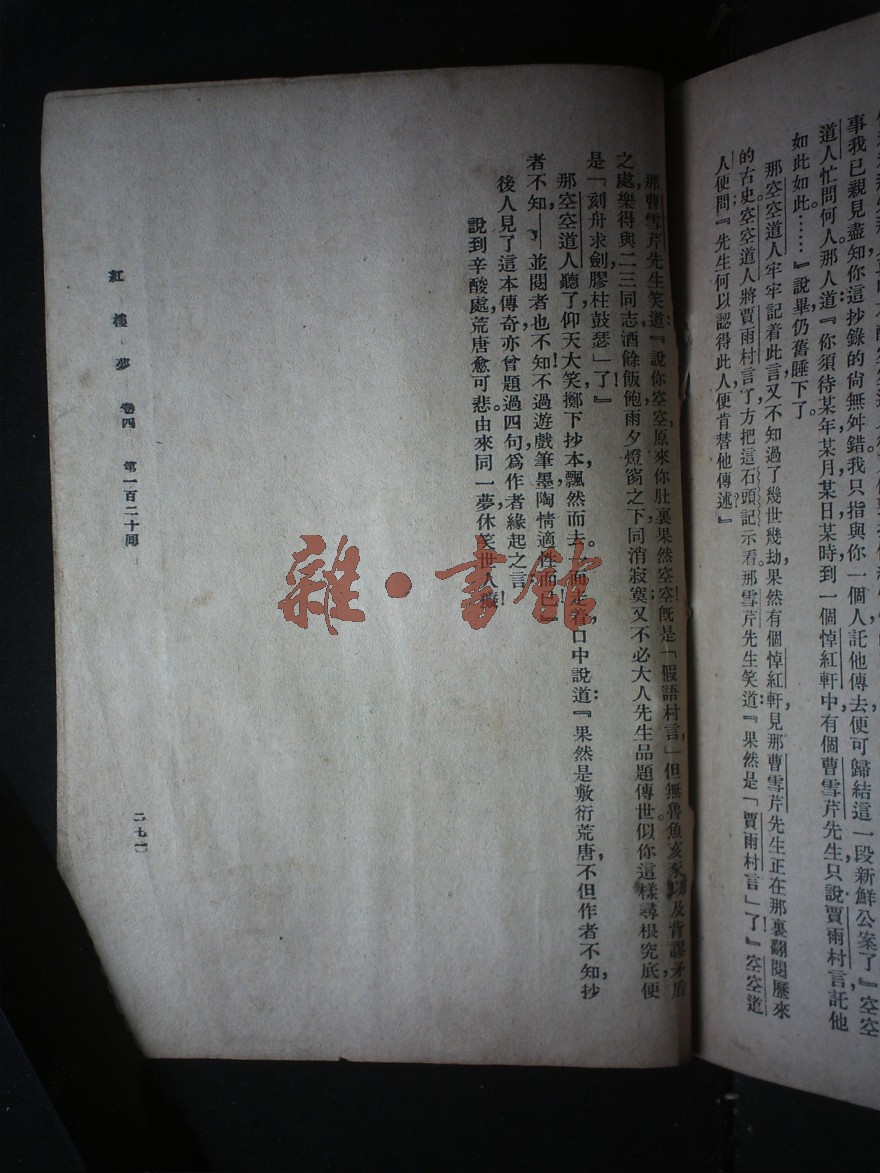 事我已親見盡知你這抄錄的尙無舛錯。我只指與你一個人，託他傳去，便可歸結這一段新鮮公案了。』空空
道人忙問何人。那人道：『你須待某年某月某日某時到一個悼紅軒中，有個曹雪芹先生，只說賈雨村言，託他
如此如此……』說畢，仍舊睡下了。
那空空道人牢牢記着此言，又不知過了幾世幾劫，果然有個悼紅軒，見那曹雪芹先生正在那裏翻閱歷來
的古史。空空道人將賈雨村言了，方把這石頭記示看。那雪芹先生笑道：『果然是「賈雨村言」了！』空空道
人便問：『先生何以認得此人，便肯替他傳述？』
那曹雪芹先生笑道：『說你空空，原來你肚裏果然空空！旣是「假語村言」，但無魯魚亥豕以及背謬矛盾
之處，樂得與二三同志，酒餘飯飽，雨夕燈窗之下，同消寂寞；又不必大人先生品題傳世。似你這樣尋根究底，便
是「刻舟求劍，膠柱鼓瑟」了！』
那空空道人聽了，仰天大笑，擲下抄本，飄然而去。一面走着，口中說道：『果然是敷衍荒唐，不但作者不知，抄
者不知，並閱者也不知。不過遊戲筆墨，陶情適性而已！』
後人見了這本傳奇，亦曾題過四句，爲作者緣起之言：
說到辛酸處，荒唐愈可悲。由來同一夢，休笑世人癡！
紅樓夢 卷四 第一百二十回
二七一
雜·書館